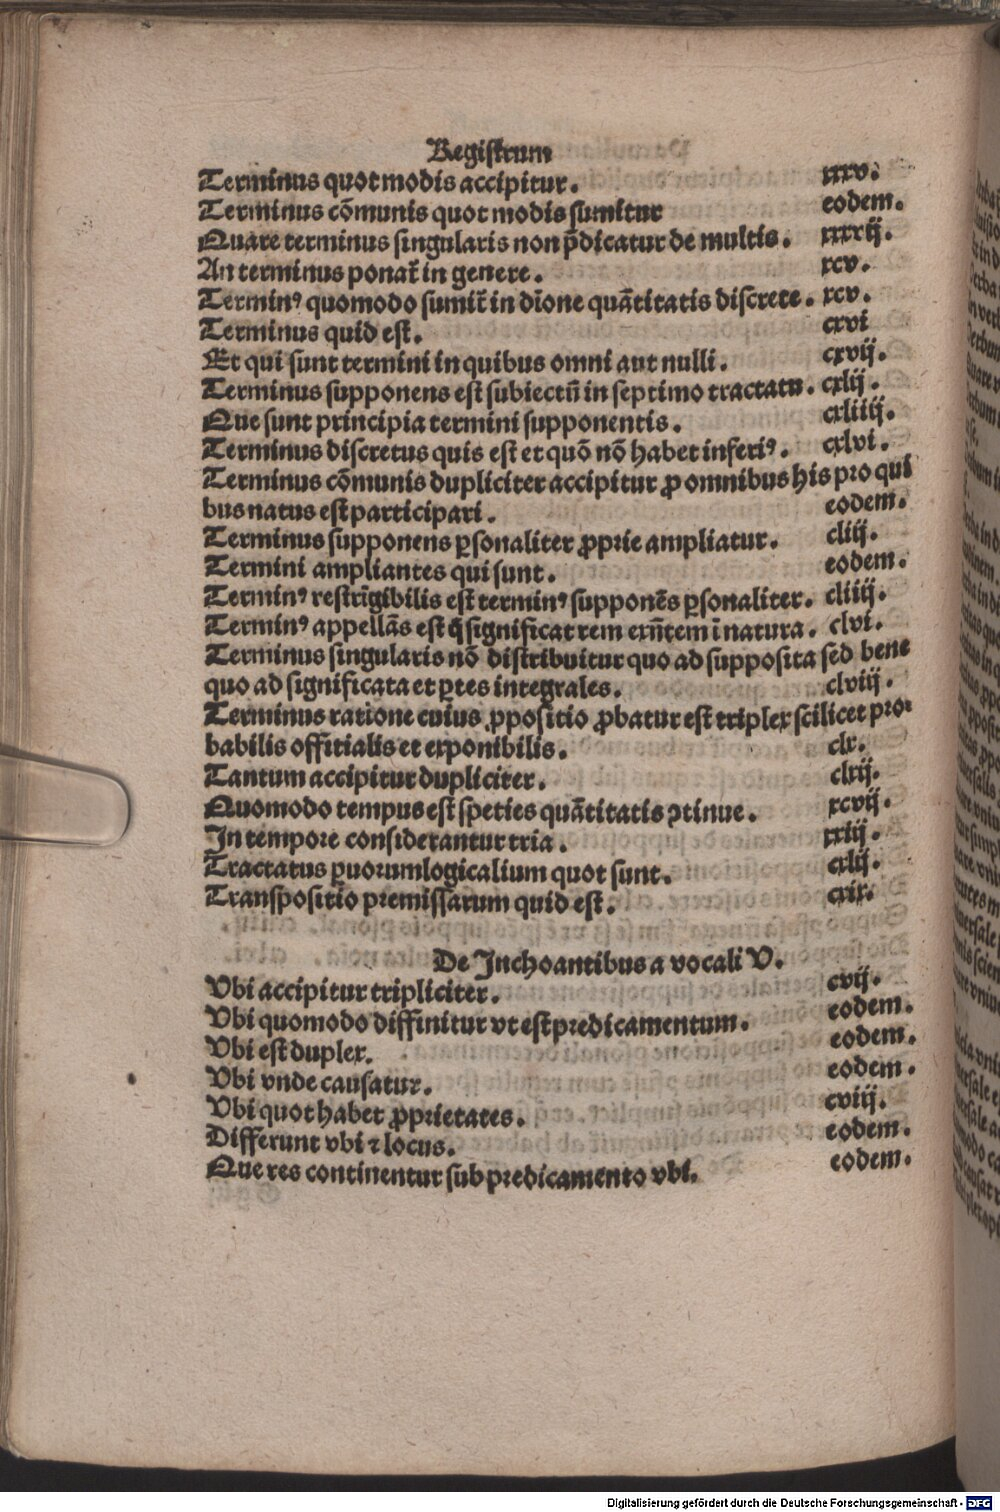 Registrum
Terminus quot modis accipitur. xxxv.
Terminus cōmunis quot modis sumitur eodem.
Quare terminus singularis non p̄dicatur de multis. xxxxij.
An terminus ponat᷑ in genere. xcv.
Terminꝰ quomodo sumit᷑ in dīone quātitatis discrete. xcv.
Terminus quid est. cxvi
Et qui sunt termini in quibus omni aut nulli. cxvij.
Terminus supponens est subiectū in septimo tractatu. cxlij.
Que sunt principia termini supponentis. cxliiij.
Terminus discretus quis est et quō nō habet inferiꝰ. cxlvi.
Terminus cōmunis dupliciter accipitur ꝓ omnibus his pro qui
bus natus est participari. eodem.
Terminus supponens ꝑsonaliter ꝓprie ampliatur. cliij.
Termini ampliantes qui sunt. eodem.
Terminꝰ restrīgibilis est terminꝰ supponēs ꝑsonaliter. cliiij.
Terminꝰ appellās est q̄ significat rem exn̄tem ī natura. clvi.
Terminus singularis nō distribuitur quo ad supposita sed bene
quo ad significata et ꝑtes integrales. clviij.
Terminus ratione cuius ꝓpositio ꝓbatur est triplex scilicet pro⸗
babilis offitialis et exponibilis. clx.
Tantum accipitur dupliciter. clxij.
Quomodo tempus est speties quātitatis ꝯtinue. xcvij.
In tempore considerantur tria. xxiij.
Tractatus ꝑuorumlogicalium quot sunt. cxlij.
Transpositio premissarum quid est. cxix.
De Inchoantibus a vocali V.
Vbi accipitur tripliciter. cvij.
Vbi quomodo diffinitur vt est predicamentum. eodem.
Vbi est duplex. eodem.
Vbi vnde causatur. eodem.
Vbi quot habet ꝓprietates. cviij.
Differunt vbi ⁊ locus. eodem.
Que res continentur sub predicamento vbi. eodem.
Digitalisierung gefördert durch die Deutsche Forschungsgemeinschaft - DFG